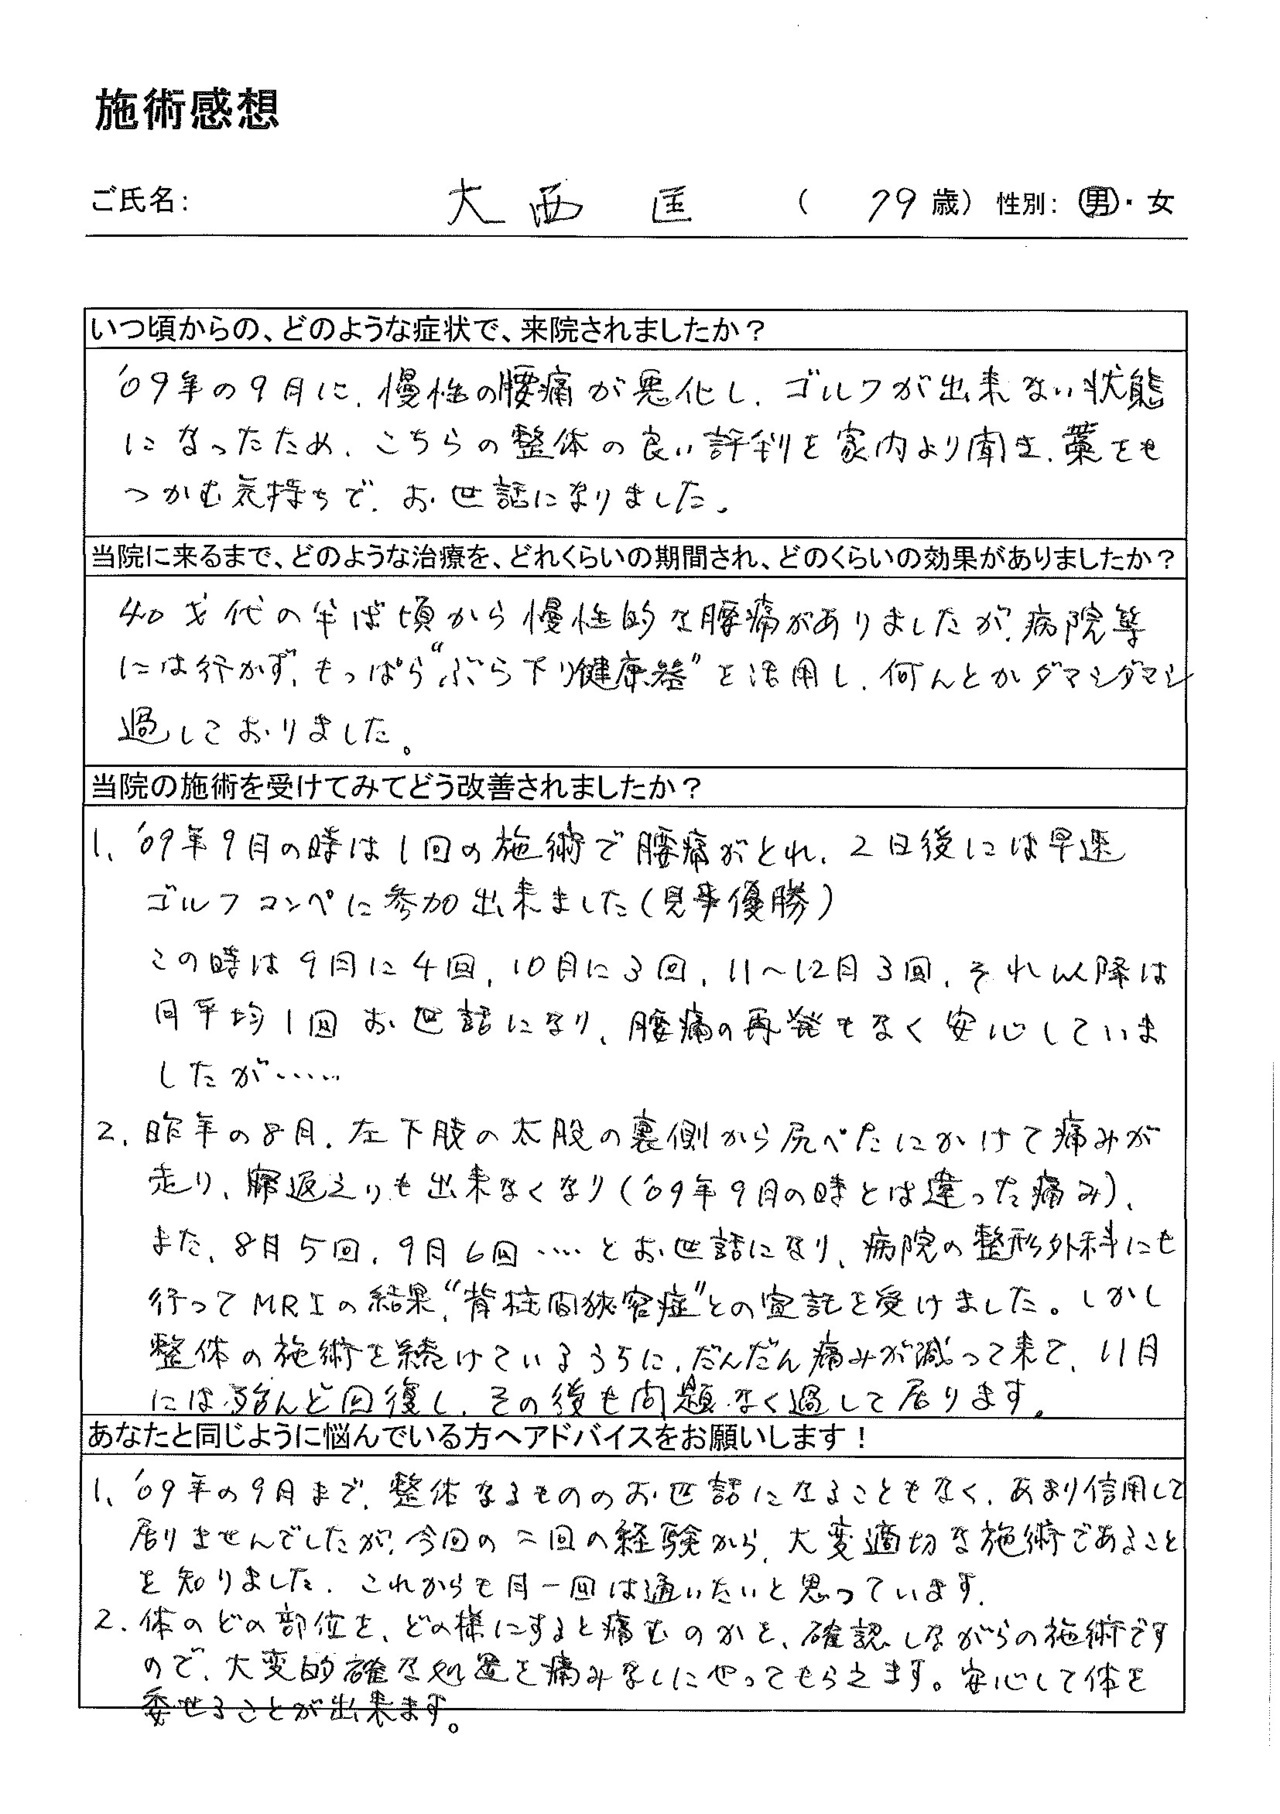 施術感想
ご氏名: 大西 匡 ( 79歳) 性別: 男・女
いつ頃からの、どのような症状で、来院されましたか？
'09年の9月に、慢性の腰痛が悪化し、ゴルフが出来ない状態
になったため、こちらの整体の良い評判を家内より聞き、藁をも
つかむ気持ちで、お世話になりました。
当院に来るまで、どのような治療を、どれくらいの期間され、どのくらいの効果がありましたか？
40才代の半ば頃から慢性的な腰痛がありましたが、病院等
には行かず、もっぱら"ぶら下り健康器"を活用し、何んとかダマシダマシ
過しておりました。
当院の施術を受けてみてどう改善されましたか？
1、'09年9月の時は1回の施術で腰痛がとれ、2日後には早速
ゴルフコンペに参加出来ました(見事優勝)
この時は9月に4回、10月に3回、11〜12月3回、それ以降は
月平均1回お世話になり、腰痛の再発もなく安心していま
したが……
2、昨年の8月、左下肢の太股の裏側から尻ぺたにかけて痛みが
走り、寝返えりも出来なくなり('09年9月の時とは違った痛み)、
また、8月5回、9月6回……とお世話になり、病院の整形外科にも
行ってMRIの結果、"脊柱間狭窄症"との宣託を受けました。しかし
整体の施術を続けているうちに、だんだん痛みが減って来て、11月
には殆んど回復し、その後も問題なく過して居ります。
あなたと同じように悩んでいる方へアドバイスをお願いします！
1、'09年の9月まで、整体なるもののお世話になることもなく、あまり信用して
居りませんでしたが、今回の二回の経験から、大変適切な施術であること
を知りました。これからも月一回は通いたいと思っています。
2、体のどの部位を、どの様にすると痛むのかを、確認しながらの施術です
ので、大変的確な処置を痛みなしにやってもらえます。安心して体を
委せることが出来ます。